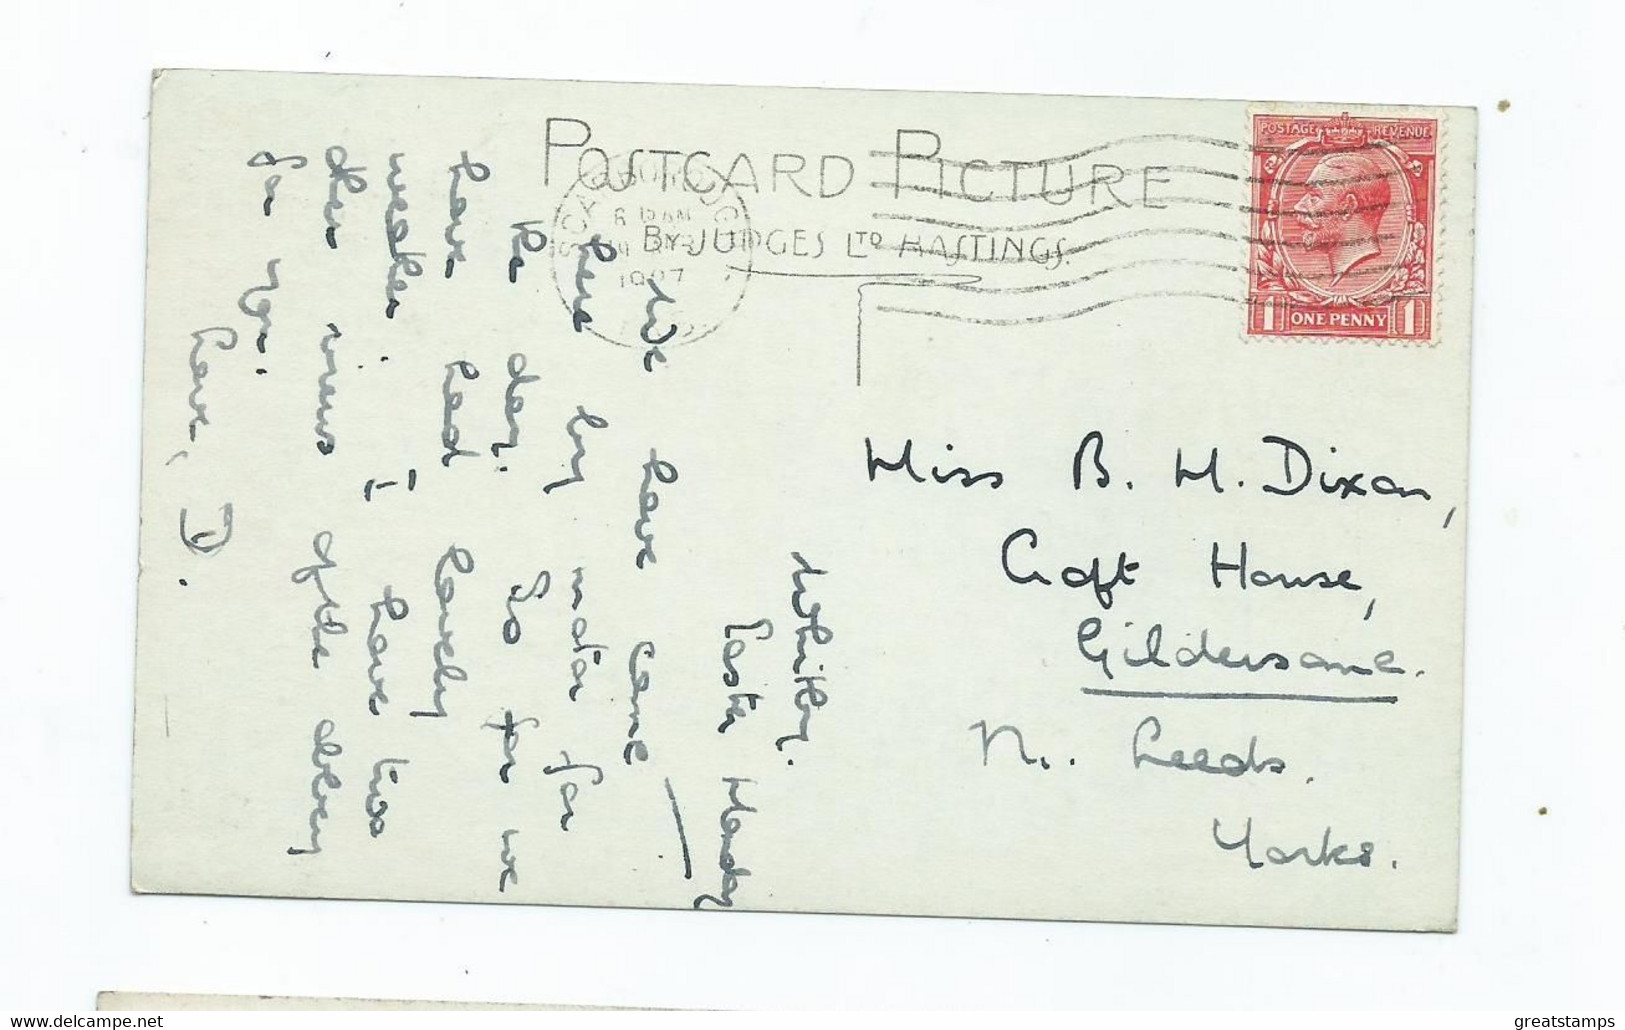 POSTCARD PICTURE
BY JUDGES LTD HASTINGS.
POSTAGE REVENUE
1 ONE PENNY 1
Whitby.
Easter Monday
We have come
here by motor for
the day. So far we
have had lovely
weather. I have two
other views of the abbey
for you.
Love, D.
Miss B. M. Dixon,
Croft House,
Gildersome.
N. Leeds.
Yorks.
greatstamps